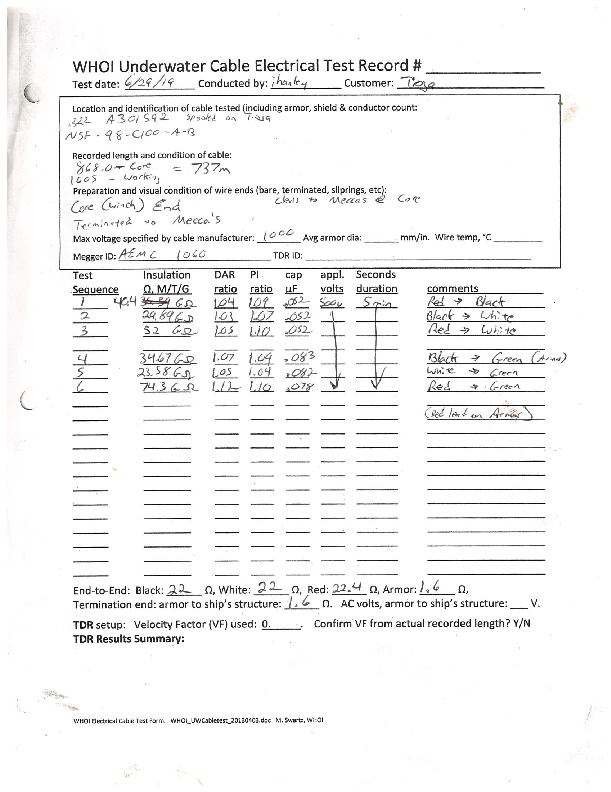 WHOI Underwater Cable Electrical Test Record # ____
Test date: 6/29/19 Conducted by: jhanley Customer:
Location and identification of cable tested (including armor, shield & conductor count:
.322 A301592 spooled on
NSF-98-C100-A-B
Recorded length and condition of cable:
868.0 - Core = 737m
1605 - working
Preparation and visual condition of wire ends (bare, terminated, sliprings, etc):
Core (winch) End to Meccas @ Core
Terminated to Mecca's
Max voltage specified by cable manufacturer: 1000 Avg armor dia: ____ mm/in. Wire temp, °C ____
Megger ID: AEMC 1060 TDR ID: ____
Test Insulation DAR PI cap appl. Seconds
Sequence Ω, M/T/G ratio ratio µF volts duration comments
1 40.4 GΩ 1.04 1.09 .052 500v 5 min Red → Black
2 29.89 GΩ 1.03 1.07 .052 Black → White
3 52 GΩ 1.05 1.10 .052 Red → White
4 34.67 GΩ 1.07 1.09 .083 Black → Green (Armor)
5 23.58 GΩ 1.05 1.04 .082 White → Green
6 74.3 GΩ 1.12 1.10 .078 Red → Green
(Red lead on Armor)
End-to-End: Black: 22 Ω, White: 22 Ω, Red: 22.4 Ω, Armor: 1.6 Ω,
Termination end: armor to ship's structure: 1.6 Ω. AC volts, armor to ship's structure: ___ V.
TDR setup: Velocity Factor (VF) used: 0.____. Confirm VF from actual recorded length? Y/N
TDR Results Summary:
WHOI Electrical Cable Test Form. WHOI_UWCabletest_20130403.doc M. Swartz, WHOI